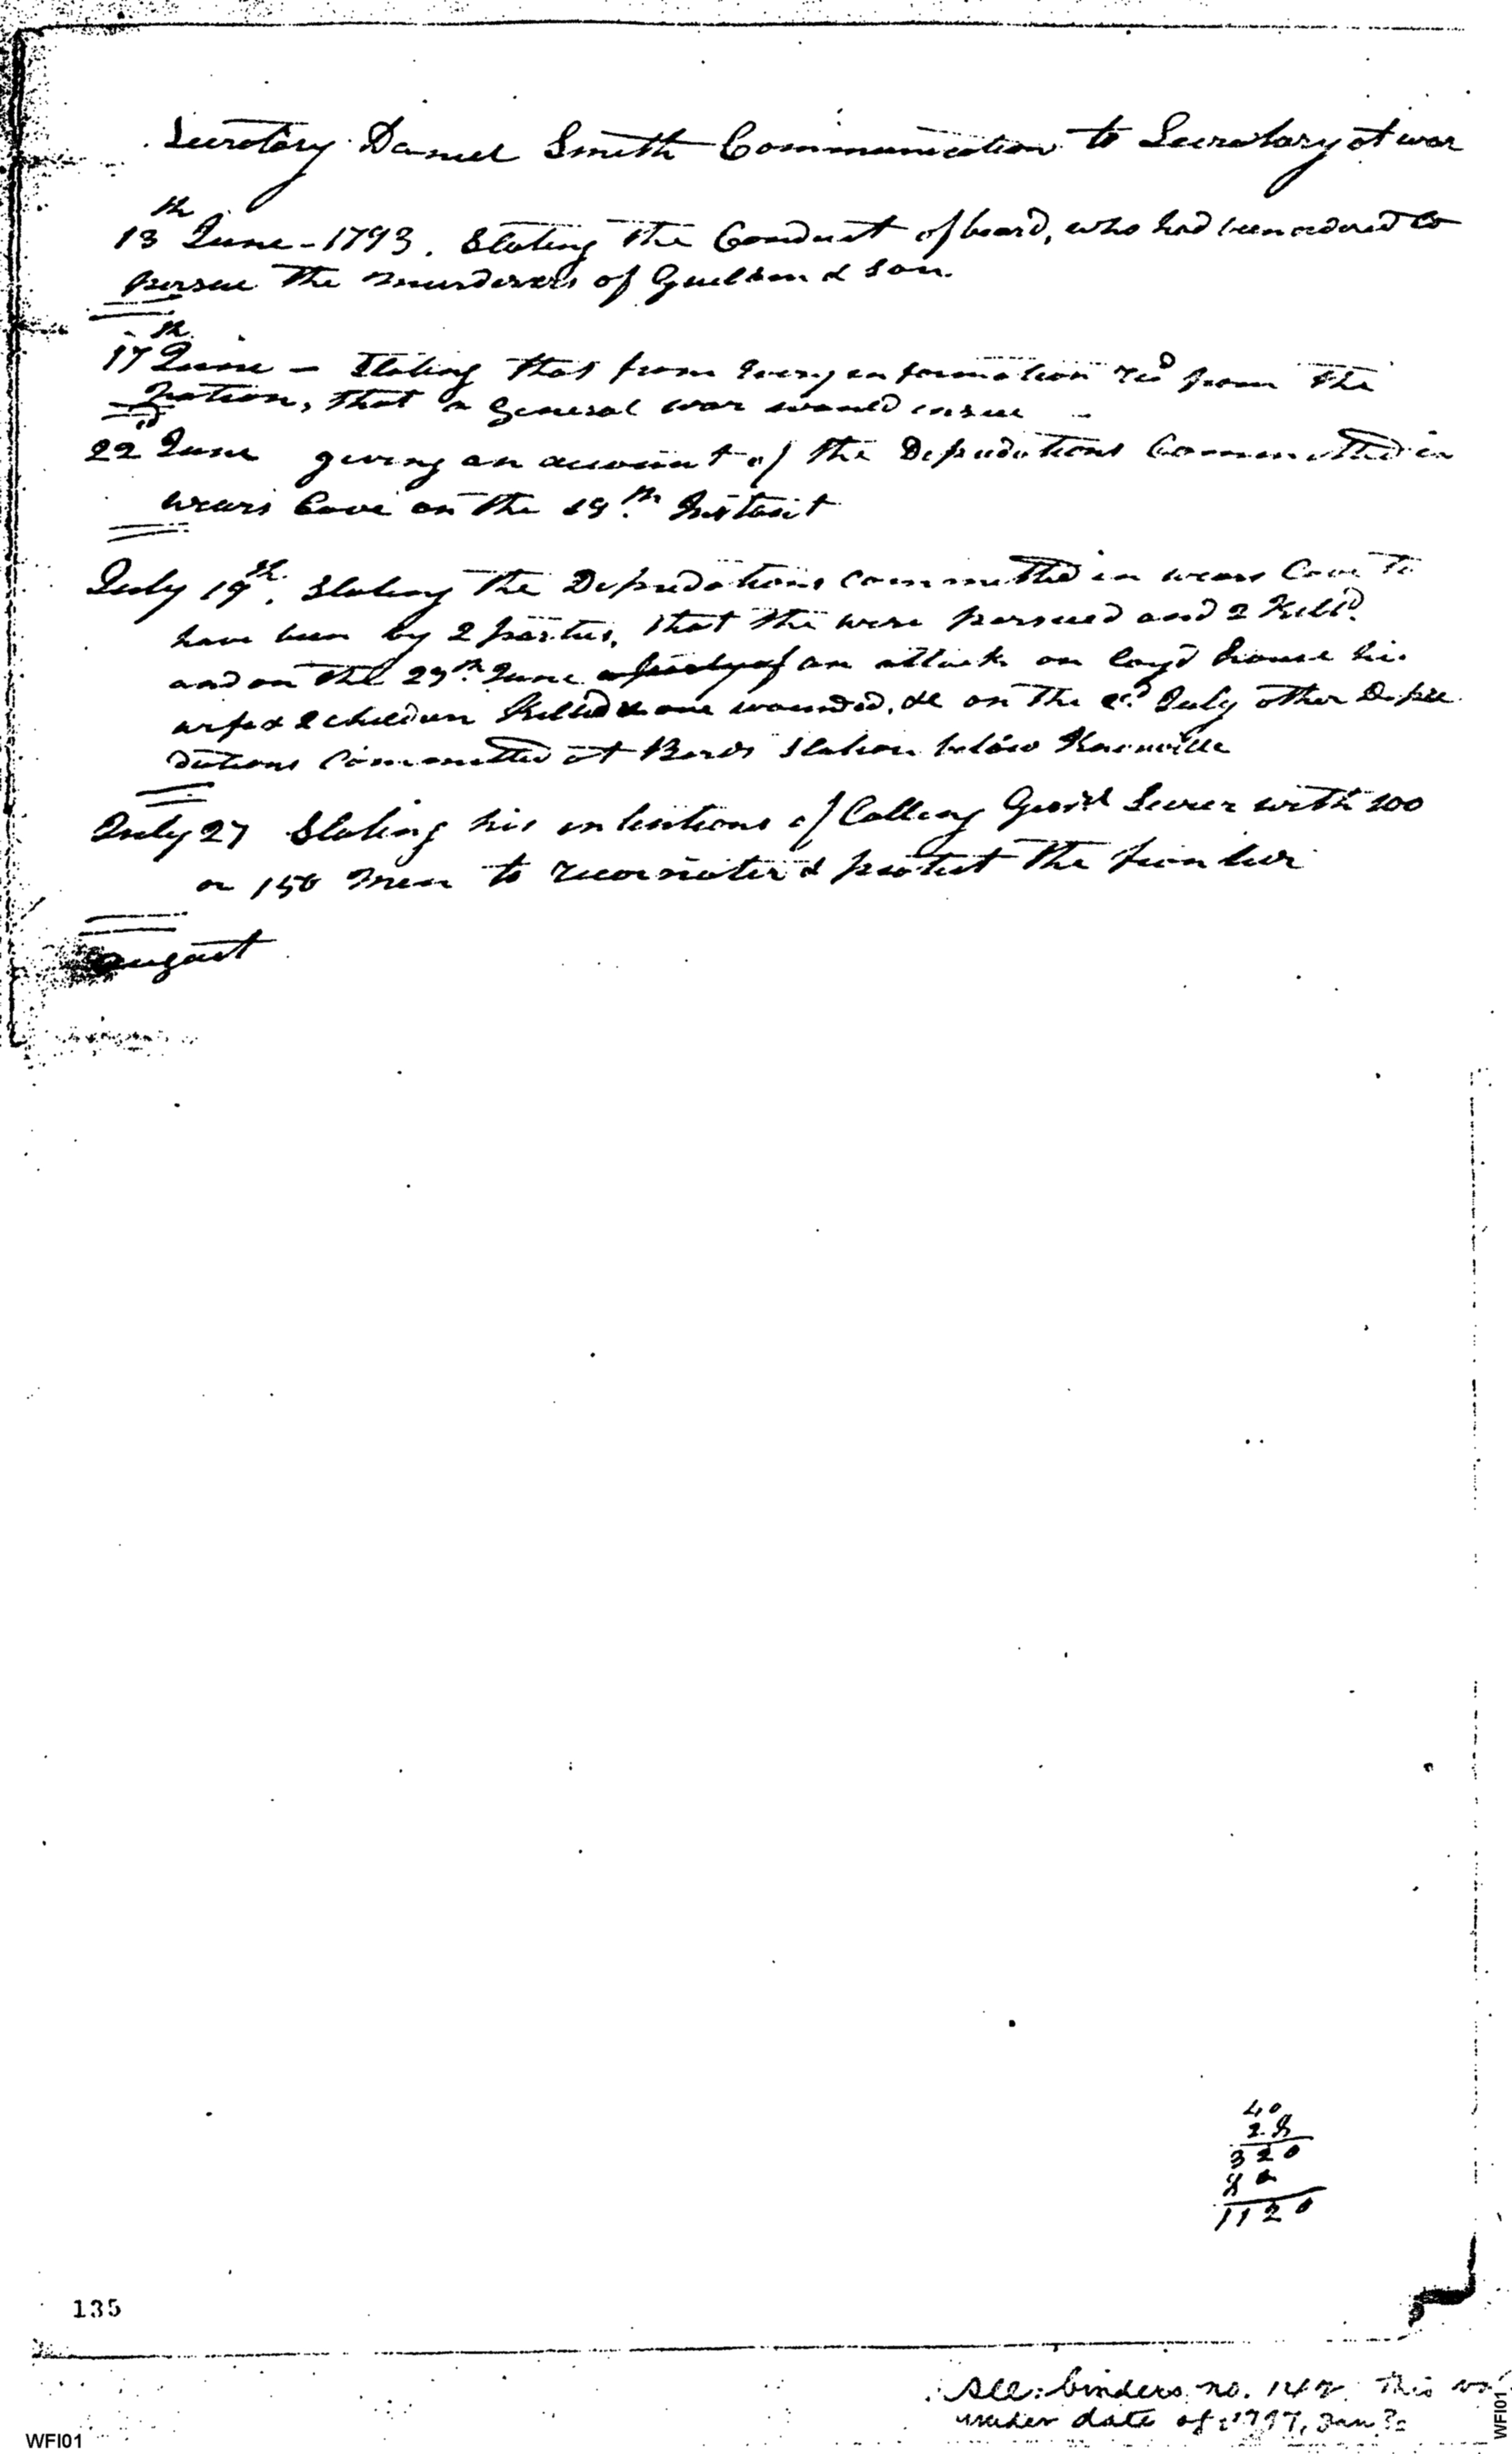 Secretary Daniel Smith Communication to Secretary at war
13th June - 1793. Stating the Conduct of beard, who had been ordered to
persue the murderers of & Son.
17th June - Stating that from every information recd from the
Nation, that a General war would ensue -
22d June giving an account of the Depredations Committed in
wears Cove on the 19th Instant
July 19th. Stating the Depredations committed in wears Cove to
have been by 2 parties, that the were persued and 2 Killd.
and on the 29th June an attack on loyd house his
wife & 2 children Killed & one wounded, &c on the 2d July other Depre
dations Committed at Bards Station below Knoxville
July 27 Stating his intentions of Calling Genrl Sevier with 100
or 150 Men to reconnoiter & protect the frontier
august
40
28
320
80
1120
135
See: binders no. 142. This vol
under date of 1797, Jan ?
WFI01
WFI01